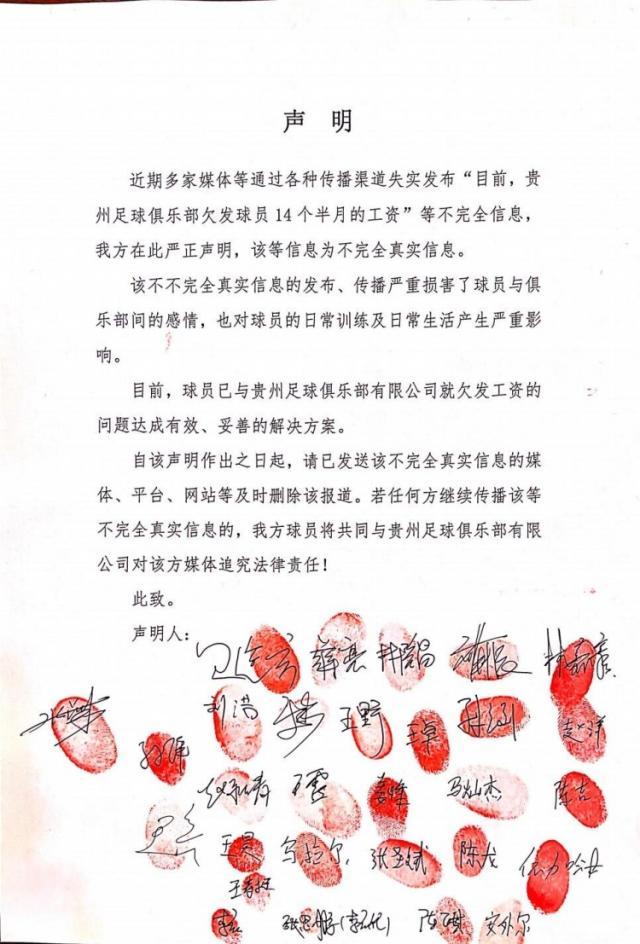 声 明
近期多家媒体等通过各种传播渠道失实发布“目前，贵
州足球俱乐部欠发球员14个半月的工资”等不完全信息，
我方在此严正声明，该等信息为不完全真实信息。
该不不完全真实信息的发布、传播严重损害了球员与俱
乐部间的感情，也对球员的日常训练及日常生活产生严重影
响。
目前，球员已与贵州足球俱乐部有限公司就欠发工资的
问题达成有效、妥善的解决方案。
自该声明作出之日起，请已发送该不完全真实信息的媒
体、平台、网站等及时删除该报道。若任何方继续传播该等
不完全真实信息的，我方球员将共同与贵州足球俱乐部有限
公司对该方媒体追究法律责任！
此致。
声明人：
刘浩 王野
马灿杰 陈吉
王昊 乌拉尔 陈龙
安外尔